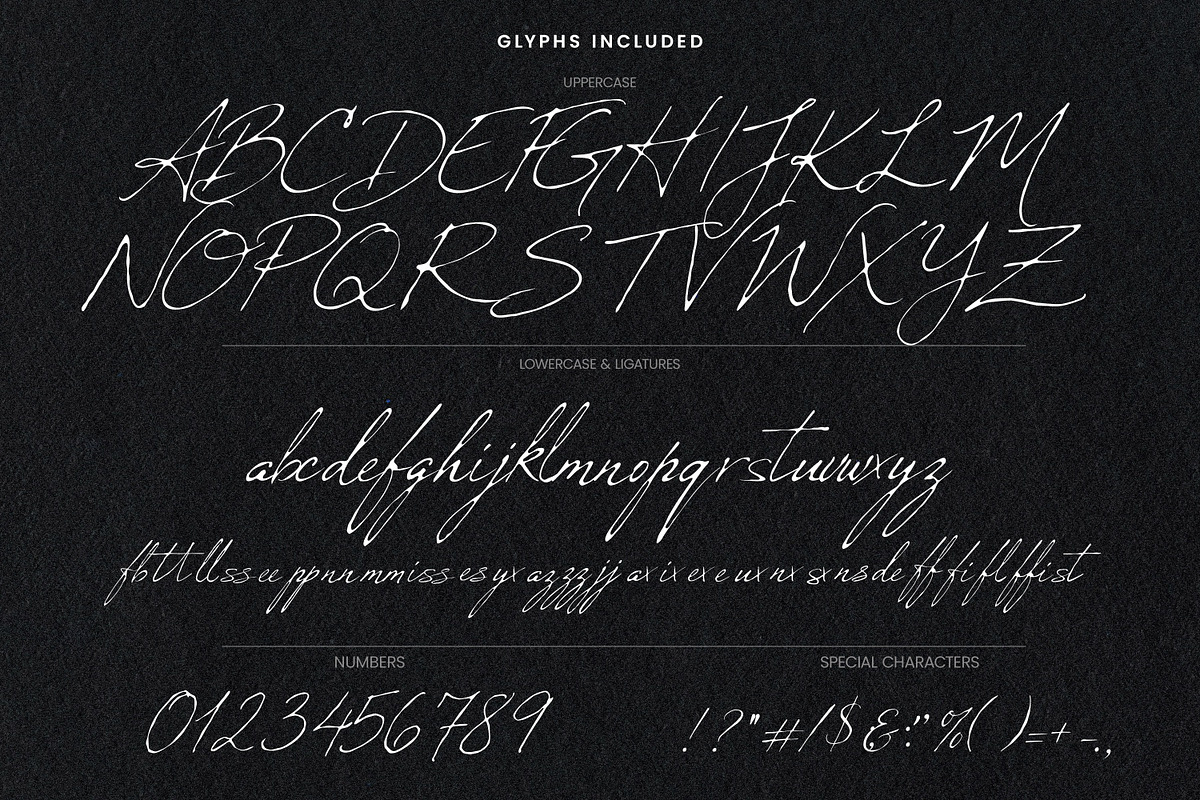 GLYPHS INCLUDED
UPPERCASE
ABCDEFGHIJKLM
NOPQRSTVWXYZ
LOWERCASE & LIGATURES
abcdefghijklmnopqrstuvwxyz
fb tt ll ss ee pp nn mm iss es yx az zz jj ax ix ex e ux nx sx ns de ff fi fl ffi st
NUMBERS
0123456789
SPECIAL CHARACTERS
! ? " # / $ & : " % ( ) = + - . ,